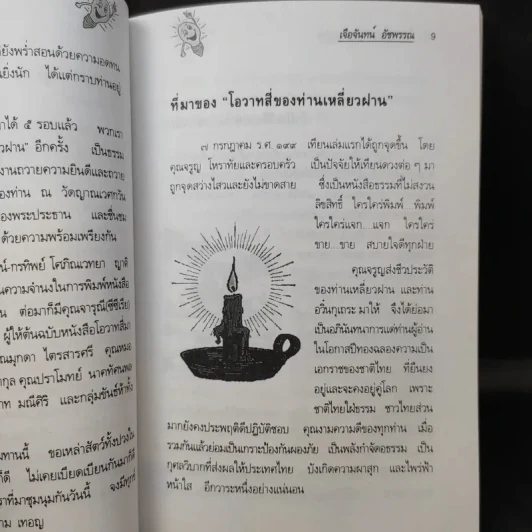 ยังพร่ำสอนด้วยความอดทน
ยิ่งนัก ได้แต่กราบท่านอยู่
าได้ ๕ รอบแล้ว พวกเรา
ฝาน" อีกครั้ง เป็นธรรม
งานถวายความยินดีและถวาย
องท่าน ณ วัดญาณเวศกวัน
องพระประธาน และชื่นชม
ด้วยความพร้อมเพรียงกัน
น์-กรทิพย์ โศภิณเวทยา ญาติ
นความจำนงในการพิมพ์หนังสือ
น ต่อมาก็มีคุณจารุณี(ซีซีเรีย)
ผู้ให้ต้นฉบับหนังสือโอวาทสี่มา
ณมุกดา ไตรสารศรี คุณหมอ
กุล คุณปราโมทย์ นาคทัศนพล
าท มณีศิริ และกลุ่มขันธ์ห้าทั้ง
ทานนี้ ขอเหล่าสัตว์ทั้งปวงใน
ก็ดี ไม่เคยเบียดเบียนกันมาก็ดี
ราที่มาชุมนุมกันวันนี้ จงมีทุกข์
าม เทอญ
เจือจันทน์ อัชพรรณ 9
ที่มาของ "โอวาทสี่ของท่านเหลี่ยวฝาน"
๗ กรกฎาคม ร.ศ. ๑๙๙ เทียนเล่มแรกได้ถูกจุดขึ้น โดย
คุณจรูญ โหราทัยและครอบครัว เป็นปัจจัยให้เทียนดวงต่อ ๆ มา
ถูกจุดสว่างไสวและยังไม่ขาดสาย ซึ่งเป็นหนังสือธรรมที่ไม่สงวน
ลิขสิทธิ์ ใครใคร่พิมพ์ พิมพ์
ใครใคร่แจก...แจก ใครใคร่
ขาย...ขาย สบายใจดีทุกฝ่าย
คุณจรูญส่งชีวประวัติ
ของท่านเหลี่ยวฝาน และท่าน
อวิ๋นกุเถระ มาให้ จึงได้ย่อมา
เป็นอภินันทนาการแด่ท่านผู้อ่าน
ในโอกาสปีทองฉลองความเป็น
เอกราชของชาติไทย ที่ยืนยง
อยู่และจะคงอยู่คู่โลก เพราะ
ชาติไทยใฝ่ธรรม ชาวไทยส่วน
มากยังคงประพฤติดีปฏิบัติชอบ คุณงามความดีของทุกท่าน เมื่อ
รวมกันแล้วย่อมเป็นเกราะป้องกันผองภัย เป็นพลังกำจัดอธรรม เป็น
กุศลวิบากที่ส่งผลให้ประเทศไทย บังเกิดความผาสุก และไพร่ฟ้า
หน้าใส อีกวาระหนึ่งอย่างแน่นอน